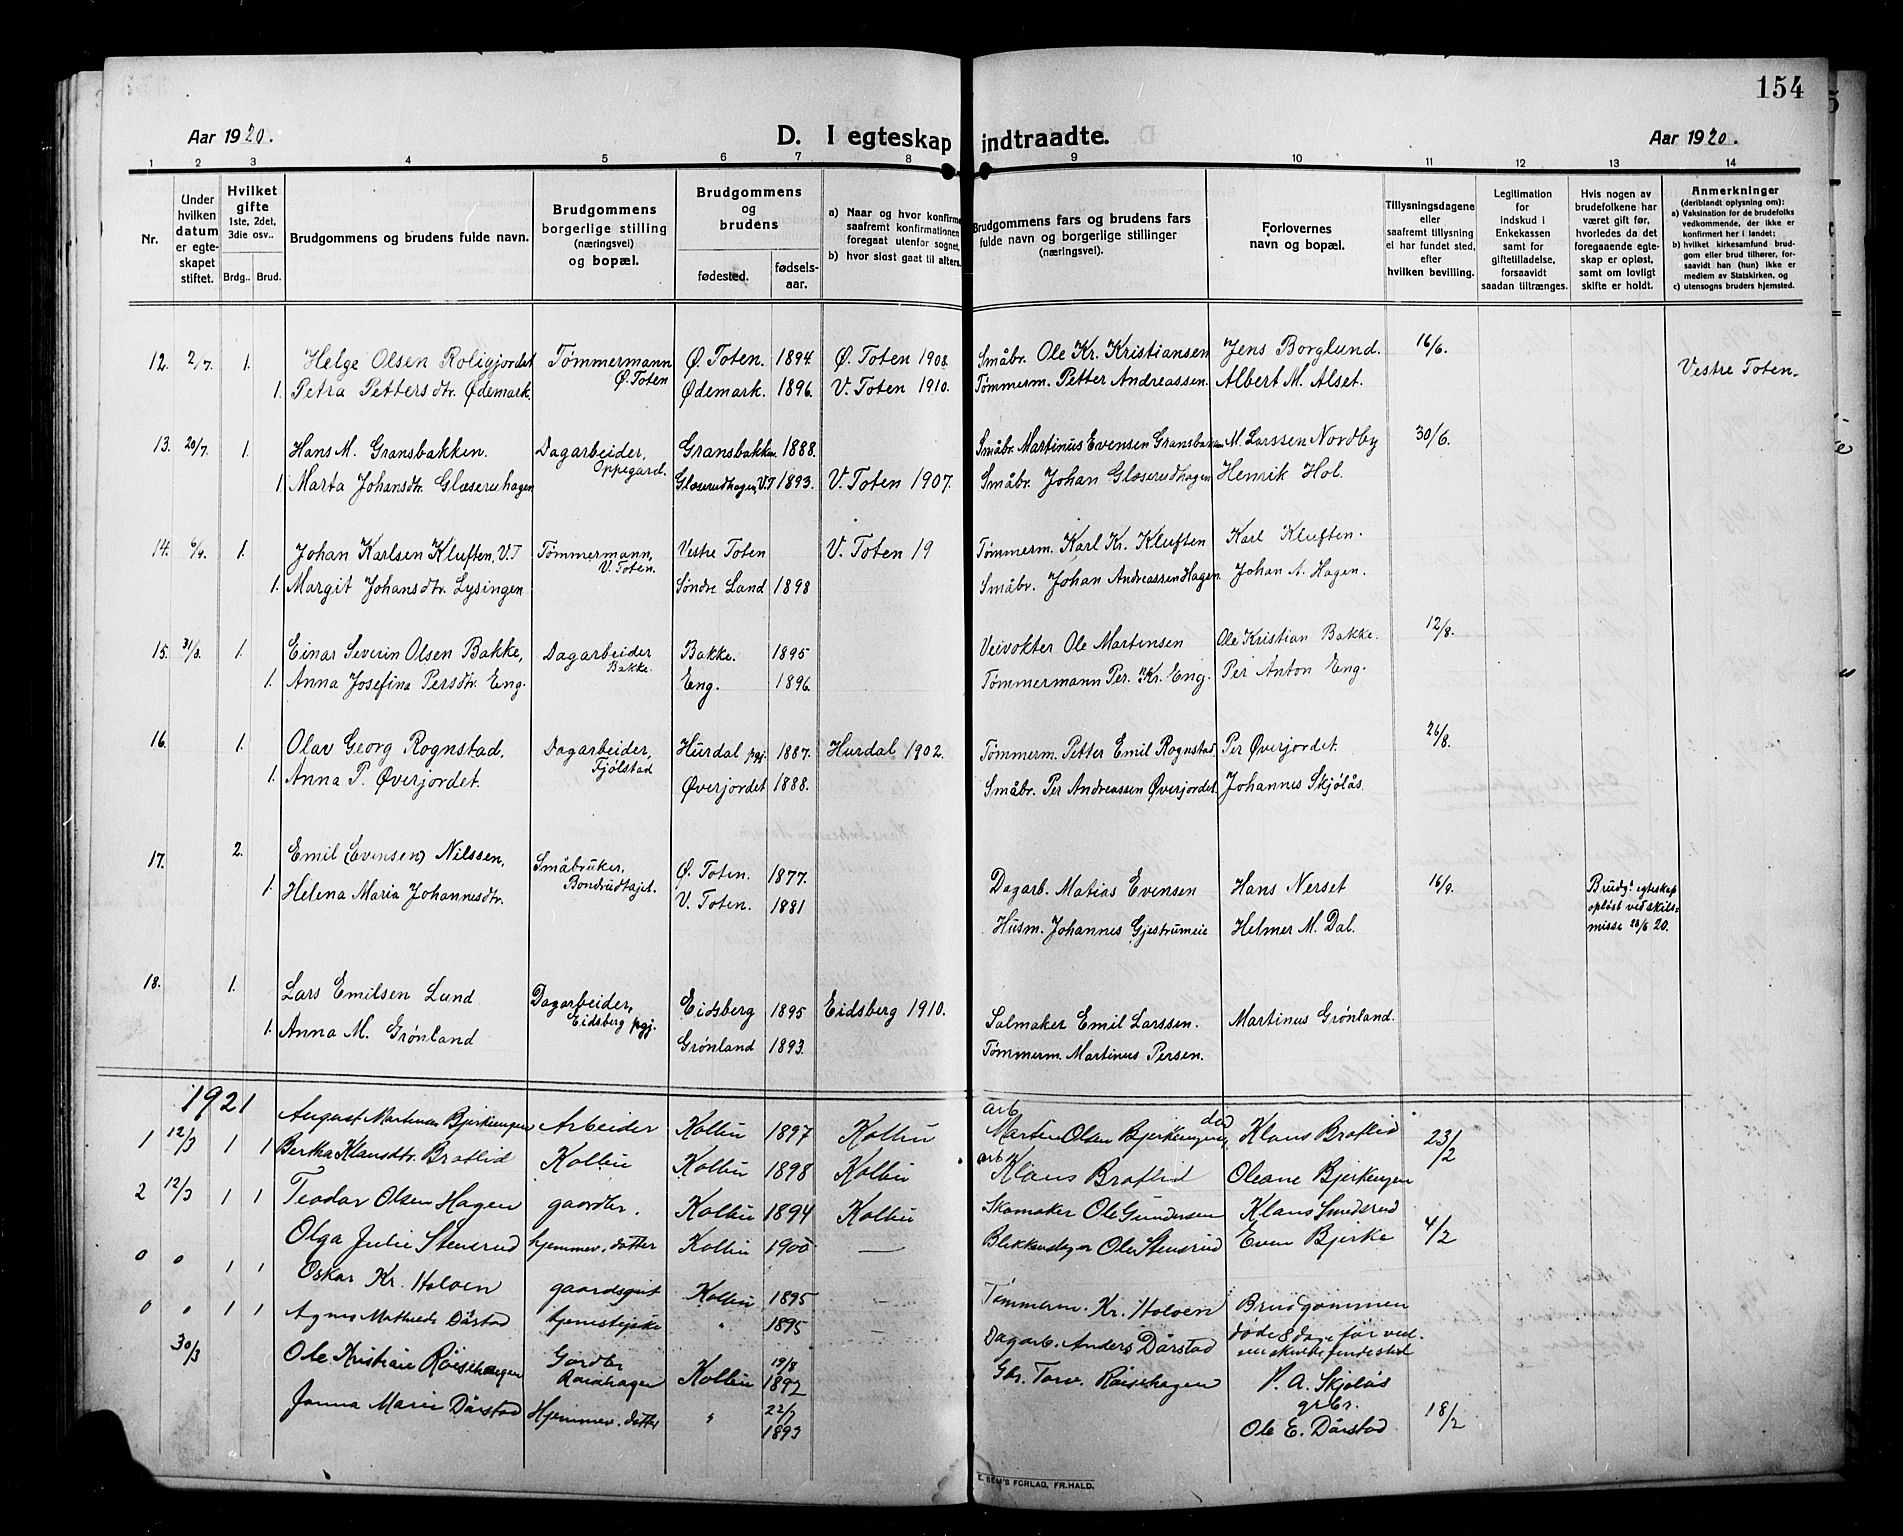 154
Aar 1920.
D. I egteskap indtraadte.
Aar 1920.
1 2 3 4 5 6 7 8 9 10 11 12 13 14
Nr.
Under hvilken datum er egteskapet stiftet.
Hvilket gifte 1ste, 2det, 3die osv..
Brdg.. Brud.
Brudgommens og brudens fulde navn.
Brudgommens borgerlige stilling (næringsvei) og bopæl.
Brudgommens og brudens
fødested.
fødselsaar.
a) Naar og hvor konfirme saafremt konfirmationen foregaat utenfor sognet,
b) hvor sidst gaat til alters.
Brudgommens fars og brudens fars fulde navn og borgerlige stillinger (næringsvei).
Forlovernes navn og bopæl.
Tillysningsdagene eller saafremt tillysning ei har fundet sted, efter hvilken bevilling.
Legitimation for indskud i Enkekassen samt for giftetilladelse, forsaavidt saadan tiltrænges.
Hvis nogen av brudefolkene har været gift før, hvorledes da det foregaaende egteskap er opløst, samt om lovligt skifte er holdt.
Anmerkninger (deriblandt oplysning om):
a) Vaksination for de brudefolks vedkommende, der ikke er konfirmert her i landet;
b) hvilket kirkesamfund brudgom eller brud tilhører, forsaavidt han (hun) ikke er medlem av Statskirken, og
c) utensogns bruders hjemsted.
12. 2/7. 1. Helge Olsen Roligjordet Tømmermann Ø. Toten Ø. Toten. 1894. Ø. Toten 1908. Småbr. Ole Kr. Kristiansen Jens Borglund. 16/6. Vestre Toten.
1. Petra Pettersdtr. Ødemark. Ødemark. 1896. V. Toten 1910. Tømmerm. Petter Andreassen. Albert M. Alset.
13. 20/7. 1. Hans M. Gransbakken. Dagarbeider, Oppegard. Gransbakken 1888. Småbr. Martinus Evensen Gransbakken M. Larssen Nordby 30/6.
1 Marta Johansdtr. Glæserudhagen Glæserudhagen, V.T 1893. V. Toten 1907. Småbr. Johan Glæserudhagen Henrik Hol.
14. 6/9. 1. Johan Karlsen Kluften, V.T Tømmermann, V. Toten. Vestre Toten V. Toten 19 Tømmerm. Karl Kr. Kluften Karl Kluften.
1. Margit Johansdtr. Lysingen Søndre Land 1898 Småbr. Johan Andreassen Hagen Johan A. Hagen.
15. 31/8. 1. Einar Severin Olsen Bakke, Dagarbeider Bakke. Bakke. 1895 Veivokter Ole Martensen Ole Kristian Bakke. 12/8.
1. Anna Josefina Persdtr. Eng. Eng. 1896. Tømmermann Per. Kr. Eng. Per Anton Eng.
16. 1. Olav Georg Rognstad. Dagarbeider, Fjølstad Hurdal pgj. 1887. Hurdal 1902. Tømmerm. Petter Emil Rognstad Per Øverjordet. 26/8.
1. Anna P. Øverjordet. Øverjordet 1888. Småbr. Per Andreassen Øverjordet Johannes Skjølås
17. 2. Emil (Evensen) Nilssen, Småbruker, Bondrudtajet. Ø. Toten. 1877. Dagarb. Matias Evensen Hans Nerset 16/9. Brudg.s egteskap opløst ved skilsmisse 28/6 20.
1. Helena Maria Johannesdtr. V. Toten. 1881 Husm. Johannes Gjestrumeie Helmer M. Dal.
18. 1. Lars Emilsen Lund Dagarbeider, Eidsberg pgj. Eidsberg 1895 Eidsberg 1910. Salmaker Emil Larssen. Martinus Grønland.
1. Anna M. Grønland Grønland 1893. Tømmerm. Martinus Persen.
1921
1 12/3 1 1 August Martinus Bjerkengen Arbeider Kolbu 1897 Kolbu arb Martin Olsen Bjerkengen død Klaus Bratlid 23/2
Bertha Klausdtr. Bratlid Kolbu Kolbu 1898 Kolbu arb. Klaus Bratlid Oleane Bjerkengen
2 12/3 1 1 Teodar Olsen Hagen gaardbr. Kolbu 1894 Kolbu Skomaker Ole Gundersen Klaus Smedsrud
Olga Julie Stensrud hjemmev. datter Kolbu 1900 — Blikkenslager Ole Stensrud Even Bjerke 4/2
0 0 1 1 Oskar Kr. Holven gaardsgut Kolbu 1895 — Tømmerm. Kr. Holven Brudgommen
0 0 1 1 Agnes Mathilde Dårstad hjemstejske " 1895 — Dagarb. Anders Dårstad døde 8 dage før
30/3 Ole Kristian Røisehagen Gardbr Røisehagen Kolbu 19/8 1892 Gbr. Torv. Røisehagen P. A. Skjølås grbr.
Janna Marie Dårstad Hjemmev. datter " 22/7 1893 Ole E. Dårstad 18/2
E. SEM'S FORLAG, FR.HALD.